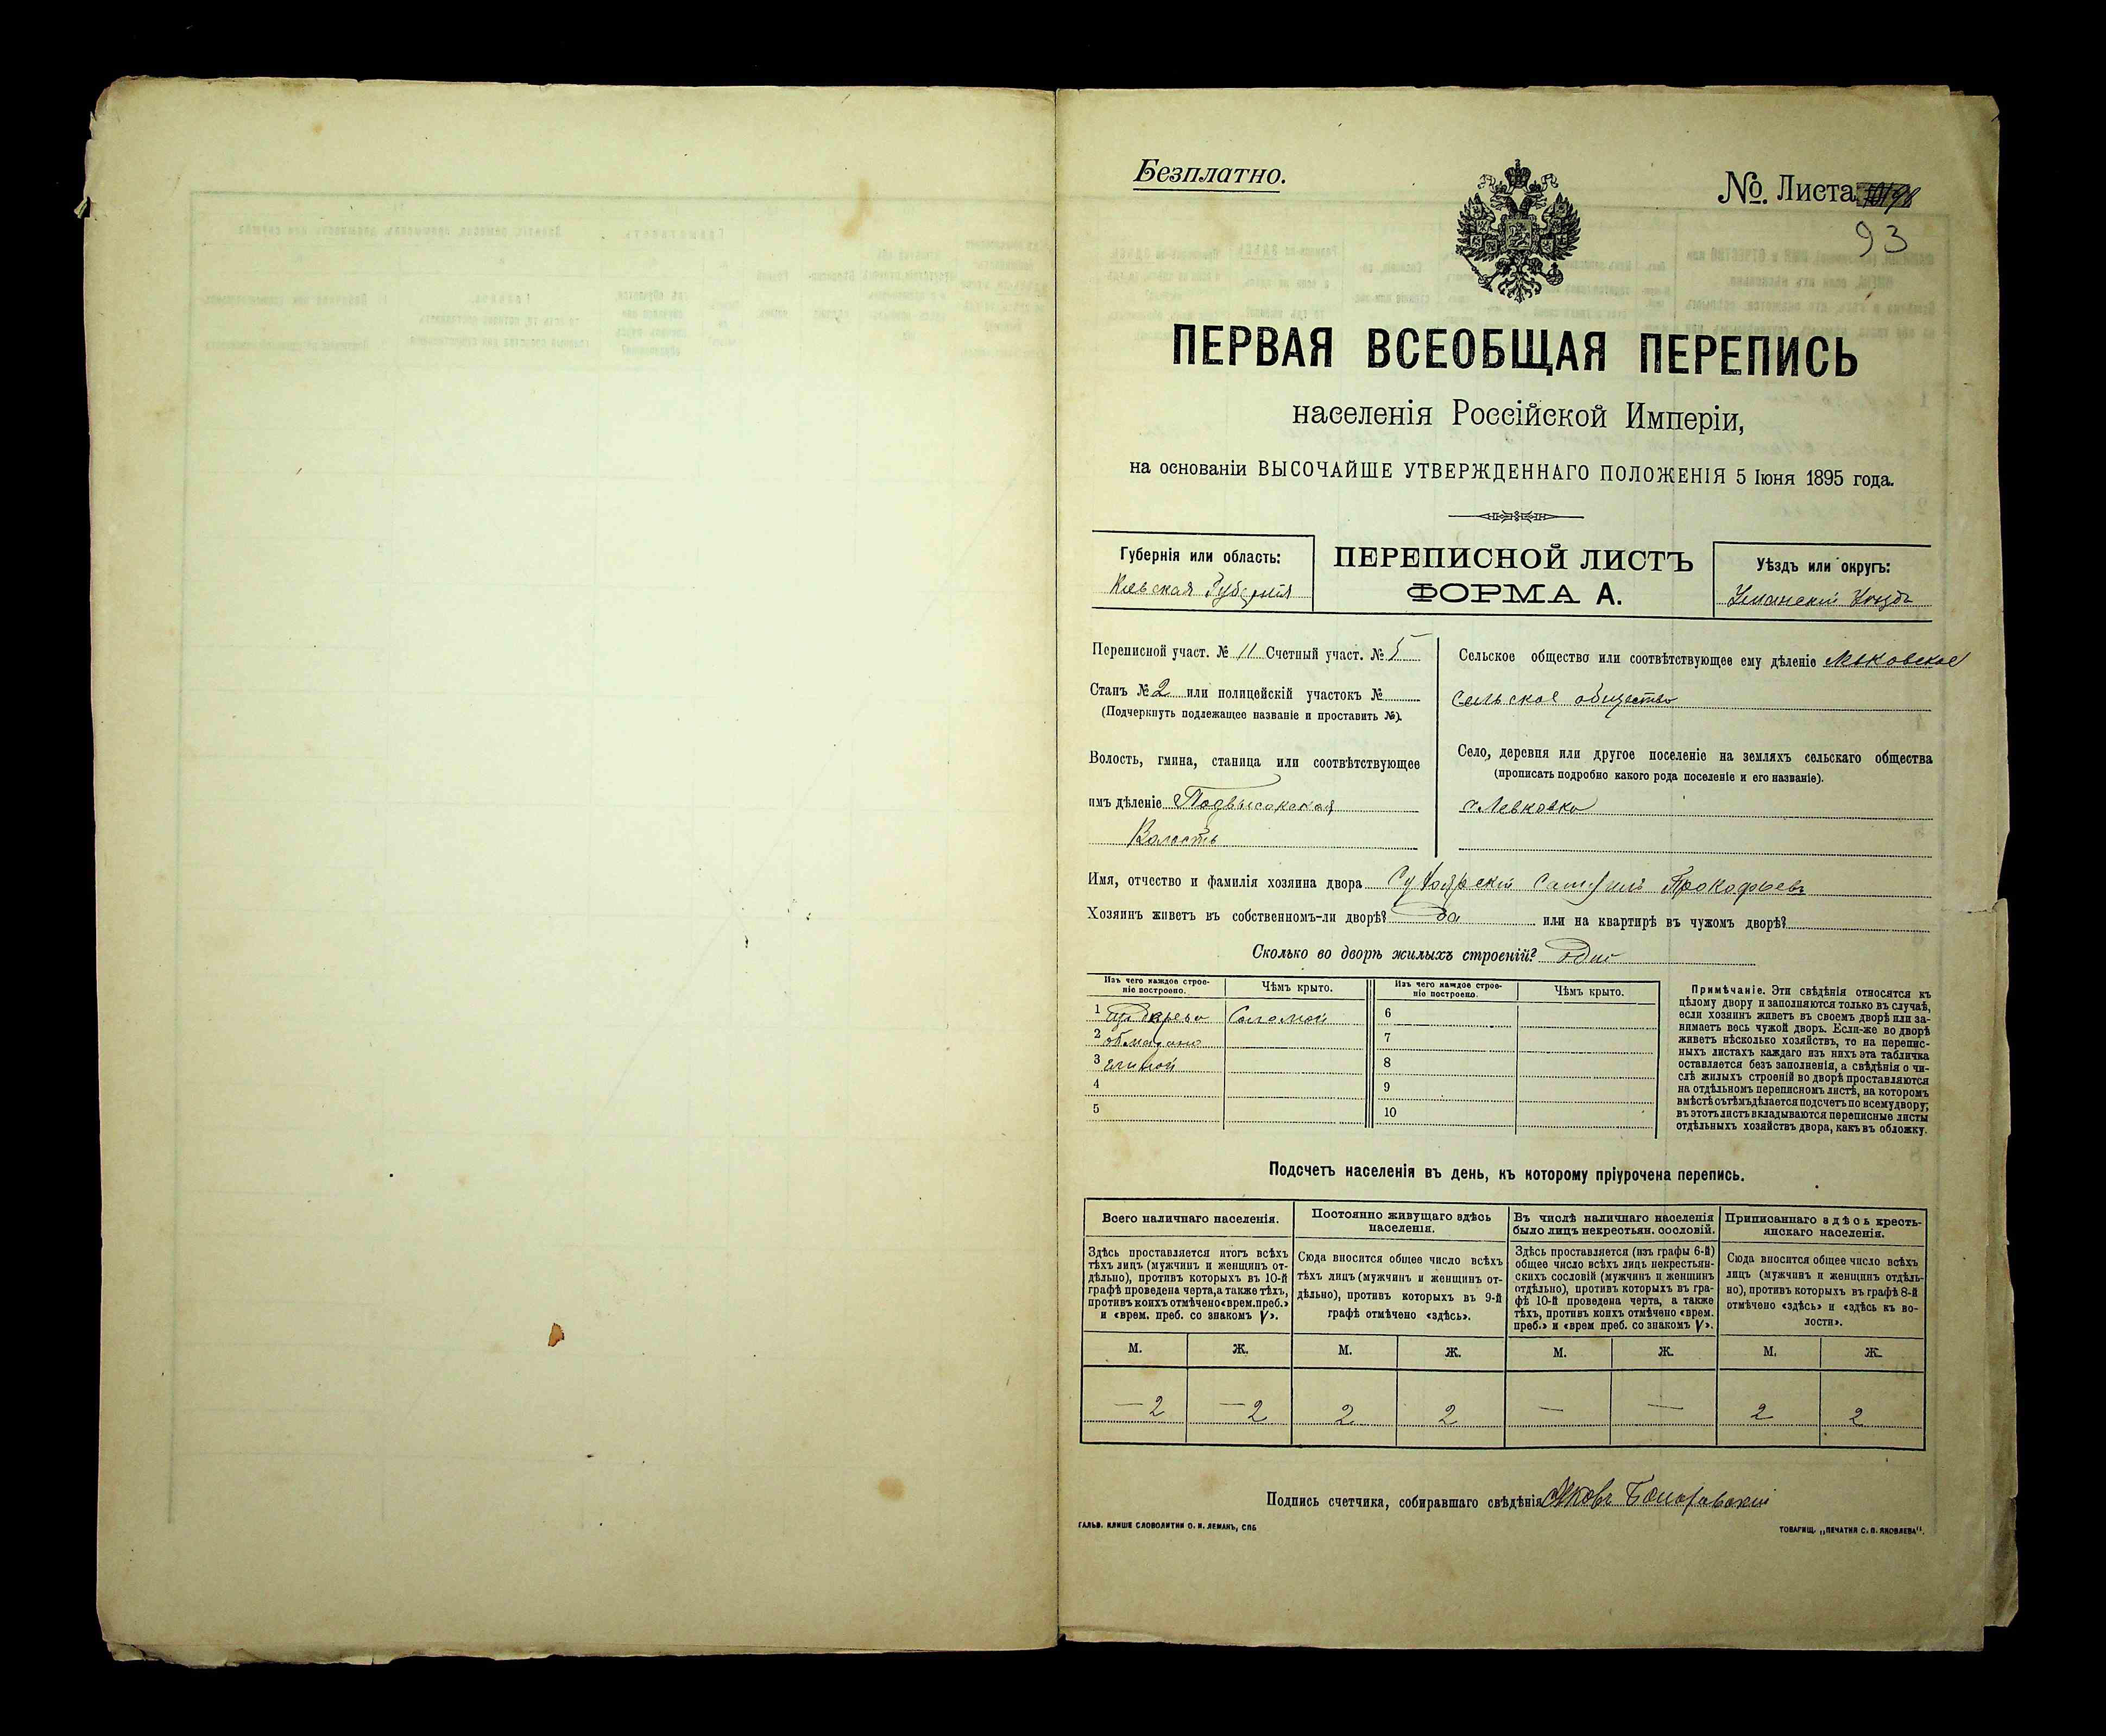 Безплатно.
№. Листа
93
ПЕРВАЯ ВСЕОБЩАЯ ПЕРЕПИСЬ
населенія Россійской Имперіи,
на основаніи ВЫСОЧАЙШЕ УТВЕРЖДЕННАГО ПОЛОЖЕНІЯ 5 Іюня 1895 года.
Губернія или область:
Кіевская Губернія
ПЕРЕПИСНОЙ ЛИСТЪ
ФОРМА А.
Уѣздъ или округъ:
Уманскій Уѣздъ
Переписной участ. № 11 Счетный участ. № 5
Станъ № 2 или полицейскій участокъ №
(Подчеркнуть подлежащее названіе и проставить №).
Волость, гмина, станица или соотвѣтствующее
имъ дѣленіе Подвысокская
Волость
Сельское общество или соотвѣтствующее ему дѣленіе
сельское общество
Село, деревня или другое поселеніе на земляхъ сельскаго общества
(прописать подробно какого рода поселеніе и его названіе).
с. Левковка
Имя, отчество и фамилія хозяина двора Прокофьевъ
Хозяинъ живетъ въ собственномъ-ли дворѣ? Да или на квартирѣ въ чужомъ дворѣ?
Сколько во дворѣ жилыхъ строеній? одно
Изъ чего каждое строе-
ніе построено.
Чѣмъ крыто.
Изъ чего каждое строе-
ніе построено.
Чѣмъ крыто.
1 дерева Соломой
2 обмазано
3 глиной
4
5
6
7
8
9
10
Примѣчаніе. Эти свѣдѣнія относятся къ
цѣлому двору и заполняются только въ случаѣ,
если хозяинъ живетъ въ своемъ дворѣ или за-
нимаетъ весь чужой дворъ. Если-же во дворѣ
живетъ нѣсколько хозяйствъ, то на перепис-
ныхъ листахъ каждаго изъ нихъ эта табличка
оставляется безъ заполненія, а свѣдѣнія о чи-
слѣ жилыхъ строеній во дворѣ проставляются
на отдѣльномъ переписномъ листѣ, на которомъ
вмѣстѣ съ тѣмъ дѣлается подсчетъ по всему двору;
въ этотъ листъ вкладываются переписные листы
отдѣльныхъ хозяйствъ двора, какъ въ обложку.
Подсчетъ населенія въ день, къ которому пріурочена перепись.
Всего наличнаго населенія.
Здѣсь проставляется итогъ всѣхъ
тѣхъ лицъ (мужчинъ и женщинъ от-
дѣльно), противъ которыхъ въ 10-й
графѣ проведена черта, а также тѣхъ,
противъ коихъ отмѣчено «врем. преб.»
и «врем. преб. со знакомъ V».
Постоянно живущаго здѣсь
населенія.
Сюда вносится общее число всѣхъ
тѣхъ лицъ (мужчинъ и женщинъ от-
дѣльно), противъ которыхъ въ 9-й
графѣ отмѣчено «здѣсь».
Въ числѣ наличнаго населенія
было лицъ некрестьян. сословій.
Здѣсь проставляется (изъ графы 6-й)
общее число всѣхъ лицъ некрестьян-
скихъ сословій (мужчинъ и женщинъ
отдѣльно), противъ которыхъ въ гра-
фѣ 10-й проведена черта, а также
тѣхъ, противъ коихъ отмѣчено «врем.
преб.» и «врем преб. со знакомъ V».
Приписаннаго здѣсь кресть-
янскаго населенія.
Сюда вносится общее число всѣхъ
лицъ (мужчинъ и женщинъ отдѣль-
но), противъ которыхъ въ графѣ 8-й
отмѣчено «здѣсь» и «здѣсь къ во-
лости».
М. Ж. М. Ж. М. Ж. М. Ж.
— 2 — 2 2 2 — — 2 2
Подпись счетчика, собиравшаго свѣдѣнія Яковъ
ГАЛЬВ. КЛИШЕ СЛОВОЛИТНИ О. И. ЛЕМАНЪ, СПБ
ТОВАРИЩ. „ПЕЧАТНЯ С. П. ЯКОВЛЕВА".